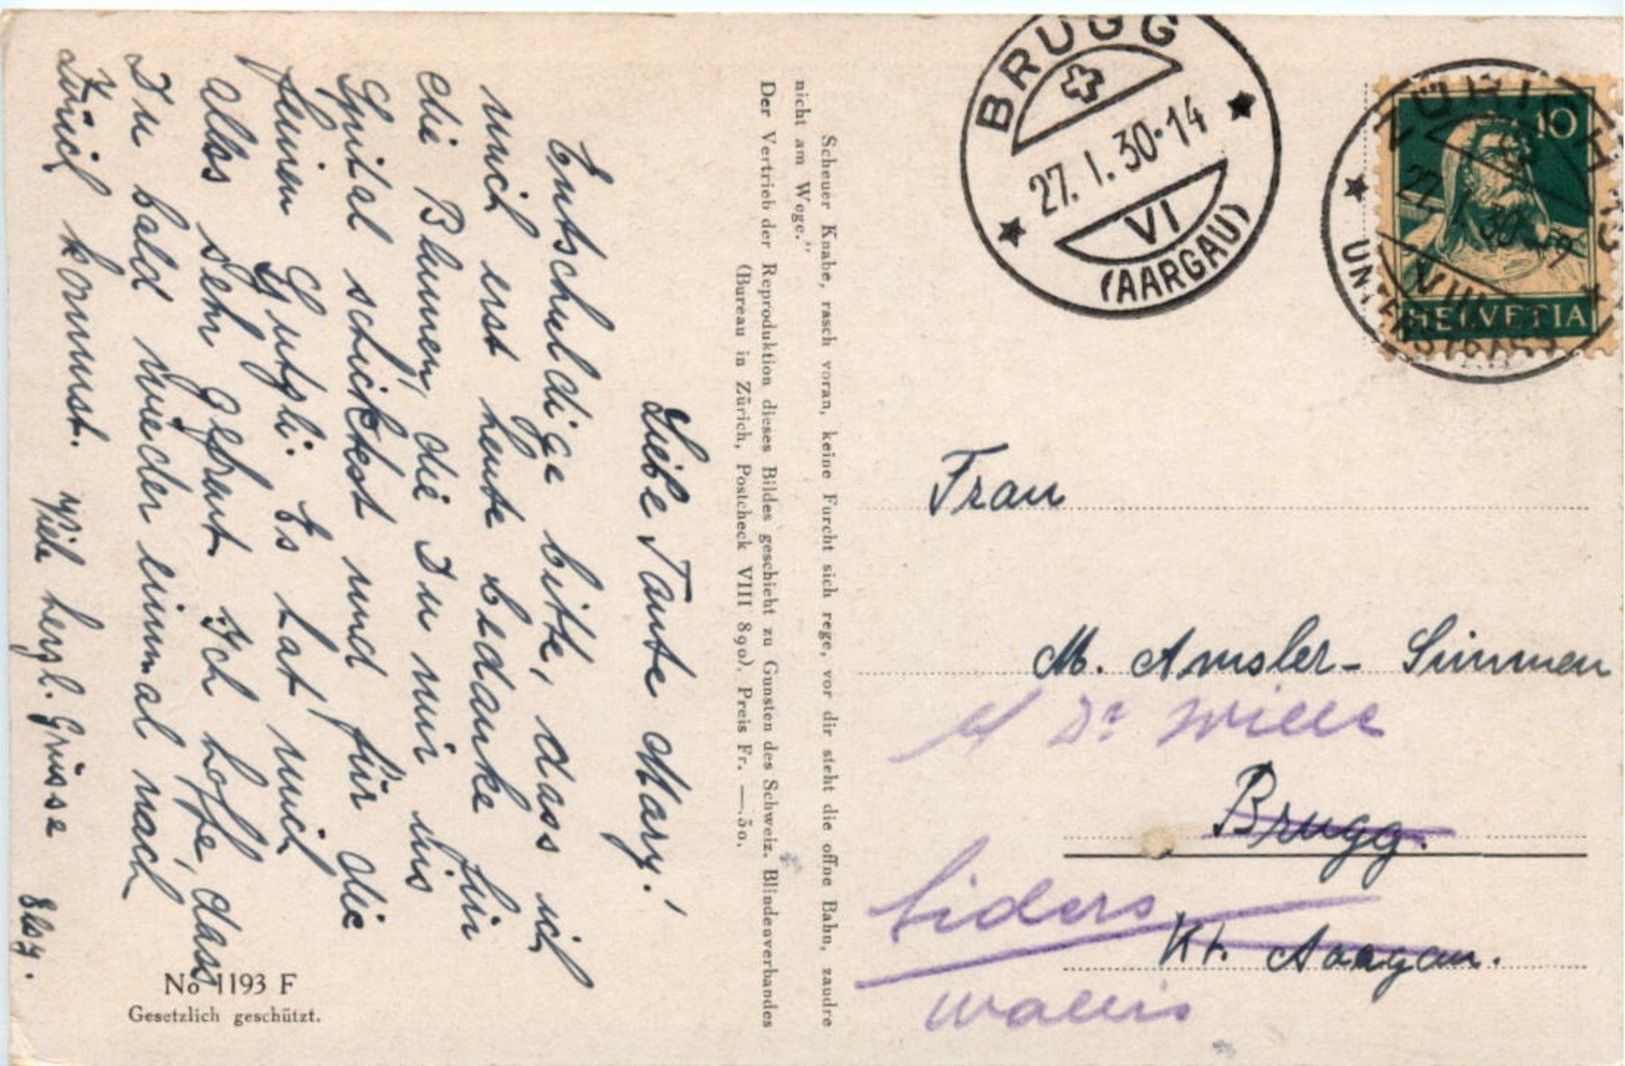 Liebe Tante Mary!
Entschuldige bitte, dass ich
mich erst heute bedanke für
die Blumen, die Du mir ins
Spital schicktest und für die
feinen Gutzli. Es hat mich
alles sehr gefreut. Ich hoffe, dass
Du bald wieder einmal nach
Zürich kommst.
Viele herzl. Grüsse
Elsy.
No 1193 F
Gesetzlich geschützt.
Scheuer Knabe, rasch voran, keine Furcht sich rege, vor dir steht die offne Bahn, zaudre
nicht am Wege."
Der Vertrieb der Reproduktion dieses Bildes geschieht zu Gunsten des Schweiz. Blindenverbandes
(Bureau in Zürich, Postcheck VIII 890). Preis Fr. —.50.
BRUGG
27. I. 30-14
VI
(AARGAU)
ZÜRICH
27. I. 30
VIII
UNTERSTRASS
10
HELVETIA
Frau
M. Amsler-Simmen
c/ Dr Wille
Brugg.
Siders
Kt. Aargau.
Wallis